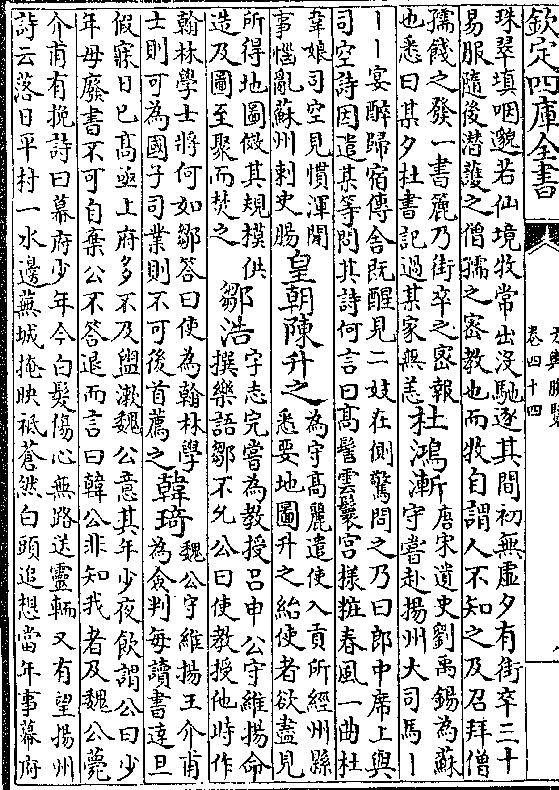 欽定四庫全書
方輿勝覽
卷四十四
珠翠填咽邈若仙境牧常出没馳逐其間初無虛夕有街卒三十
易服隨後潜護之僧孺之密教也而牧自謂人不知之及召拜僧
孺餞之發一書麗乃街卒之密報
也悉曰某夕杜書記過某家無恙
杜鴻漸
唐宋遺史劉禹錫為蘇
守嘗赴揚州大司馬丨
丨丨宴醉歸宿傳舍既醒見二妓在側驚問之乃曰郎中席上與
司空詩因遣某等問其詩何言曰髙髻雲鬟宫樣粧春風一曲杜
韋娘司空見慣渾閒
事惱亂蘇州剌史腸
皇朝陳升之
為守髙麗遣使入貢所經州縣
悉要地圖升之紿使者欲盡見
所得地圖倣其規模供
造及圖至聚而焚之
鄒浩
字志完嘗為教授吕申公守維揚命
撰樂語鄒不允公曰使教授他時作
翰林學士將何如鄒答曰使為翰林學
士則可為國子司業則不可後首薦之
韓琦
魏公守維揚王介甫
為僉判每讀書達旦
假寐日已髙亟上府多不及盥漱魏公意其年少夜飲謂公曰少
年毋廢書不可自棄公不答退而言曰韓公非知我者及魏公薨
介甫有挽詩曰幕府少年今白髮傷心無路送靈輀又有望揚州
詩云落日平村一水邊蕪城掩映祇蒼然白頭追想當年事幕府